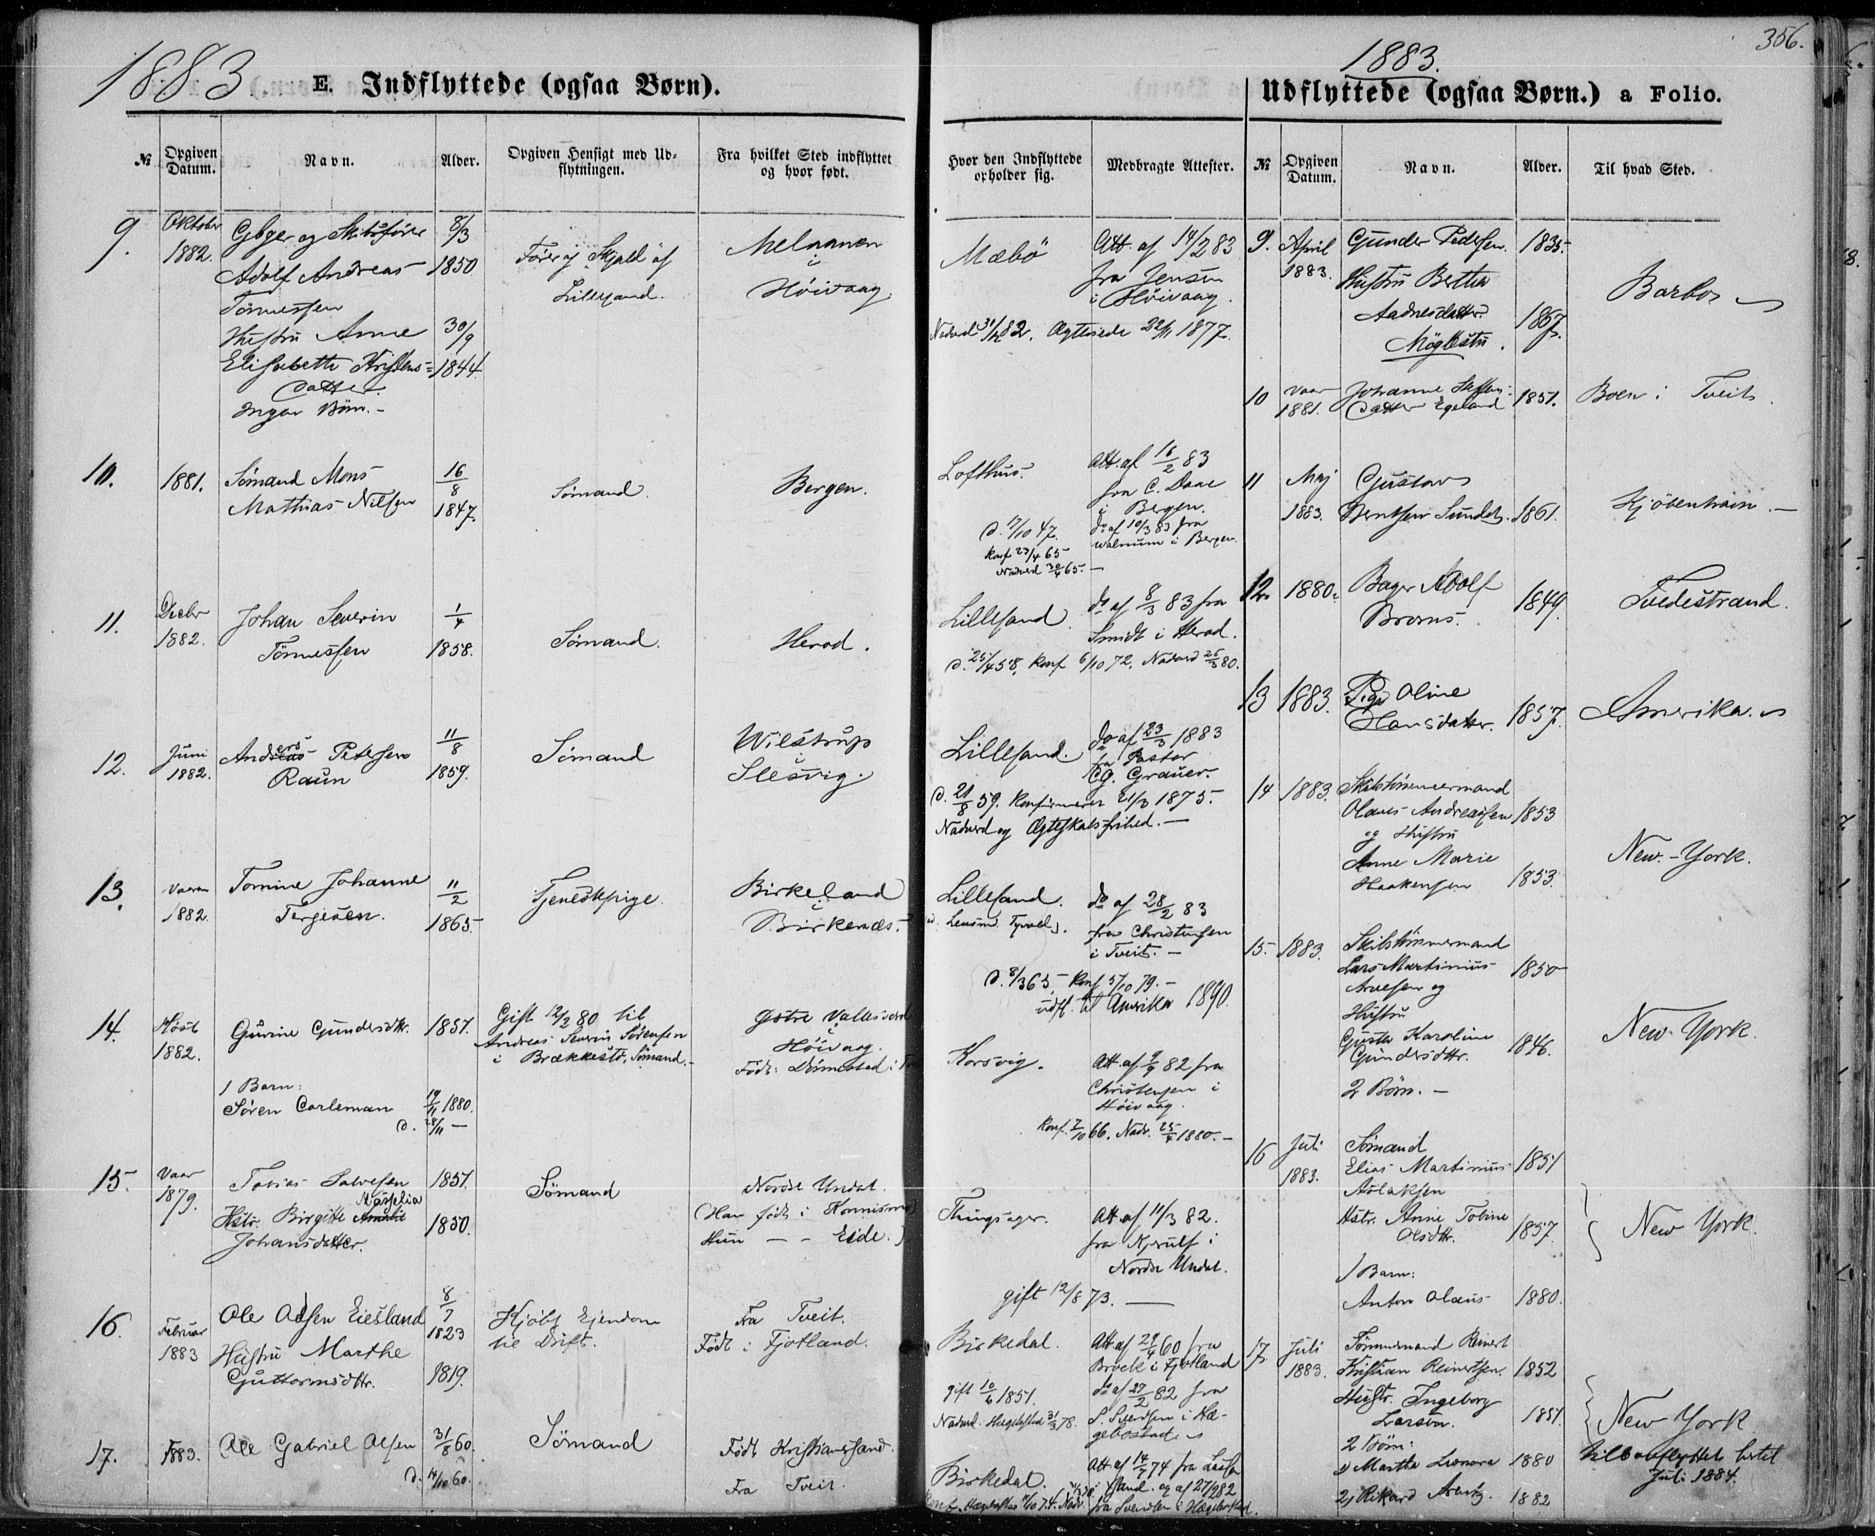 1883
E. Indflyttede (ogsaa Børn).
№
Opgiven Datum.
Navn.
Alder.
Opgiven Hensigt med Ud-
flytningen.
Fra hvilket Sted indflyttet
og hvor født.
Hvor den Indflyttede
opholder sig.
Medbragte Attester.
9.
Oktober
1882.
Adolf Andreas
Tønnessen
Hustru Anne
Elisabeth
Datter
Ingen Børn.
8/3
1850
30/9
1844.
Lillesand.
i
Høivaag
Mæbø
Att. af 14/2 83
fra Jensen
i Høivaag.
Ægteviede 22/11 1877.
10.
1881.
Sømand Mons
Mathias Nilsen
16/8
1847.
Sømand.
Bergen.
Lofthus.
Att. af 16/2 83
fra C. Daae
i Bergen.
do af 10/3 83 fra
i Bergen
D. 17/10 47.
Konf 23/4 65
Nadverd 30/4 65.
11.
Decbr
1882.
Johan Severin
Tønnessen
1/4
1858.
Sømand.
Herad.
Lillesand.
do af 8/3 83 fra
Smidt i Herad.
D. 25/4 58. Konf 6/10 72. Nadverd 25/3 80.
12.
Juni
1882.
Anders Petersen
Raun
11/8
1859.
Sømand
Wilstrup
i
Slesvig.
Lillesand.
do af 23/3 1883
fra Pastor
C. G. Grauer.
D. 21/8 59. Konfirmeret 21/3 1875.
Nadverd og Ægteskabsfrihed.
13.
Vaaren
1882.
Tomine Johanne
Tergesen.
11/2
1865
Tjenestepige.
Birkeland
i
Birkenæs.
Lillesand.
do af 28/2 83
fra Christensen
i Tveit.
D. 8/3 65, Konf 5/10 79.
udfl. til Amerika 1890.
14.
Høst
1882.
Gurine Gundersdtr.
1851.
1 Barn:
Søren Carleman
19/11 1880.
D. 28/11
Gift 12/2 80 til
Andreas Severin Sørensen
i Brækkestø, Sømand.
Østre Vallesverd
Høivaag.
Født:
Korsvig.
Att. af 9/9 82 fra
Christensen i
Høivaag.
Konf. 7/10 66. Nadv. 25/4 1880.
15.
Vaar
1879.
Tobias Salvesen
Hstr. Birgitte
Johansdatter.
1851.
1850.
Sømand
Nordre Undal.
(Han født i
Hun — — Eide.)
Thingsager.
Att af 11/3 82.
fra Kjerulf i
Nordre Undal.
gift 12/8 73.
16.
Februar
1883
Ole Olsen Eiesland
8/7
1823
Hustru Marthe
Guttormsdtr.
1819.
Kjøbt Ejendom
til Drift.
Fra Tveit.
Født i Fjotland.
Birkedal.
Att af 29/4 60 fra
Brock i Fjotland
do af 27/2 82 fra
S. Svendsen i Hæ-
gebostad
gift 10/6 1851.
Nadverd. Hægebostad 31/3 78.
17.
1883.
Ole Gabriel Olsen
31/8 60.
D. 14/10 60.
Sømand
Født Kristiansand.
Fra Tveit
Birkedal.
Att af 14/7 74 fra
fra Svendsen i Hægebostad
1883.
356.
Udflyttede (ogsaa Børn.) a Folio.
№
Opgiven Datum.
Navn.
Alder.
Til hvad Sted.
9.
April
1883.
Gunder Pedersen
1835.
Hustru Berthe
Aadnesdatter
Møglestu.
1867.
Barbo
10
Vaar
1881.
Johanne
Datter Egeland
1851.
Boen i Tveit.
11
Maj
1883.
Gustav
Berntsen Sundet.
1861.
Kjøbenhavn.
12.
1880.
Bager Adolf
Bruns.
1849.
Tvedestrand.
13
1883.
Pige Oline
Hansdatter.
1857.
Amerika.
14
1883.
Skibstømmermand
Olaus Andreassen
og Hustru
Anne Marie
Haakensen
1853
1853.
New-York.
15.
1883.
Skibstømmermand
Lars Martinius
Arvesen og
Hustru
Karoline
Gundersdtr.
2 Børn.
1850
1846.
New-York.
16
Juli
1883.
Sømand
Elias Martinius
Aslaksen
Hstr. Anne Tobine
Olsdtr.
1 Barn:
Anton Olaus
1851
1857
1880.
New York.
17.
Juli
1883.
Tømmermand Reinert
Kristian Reinertsen.
Hustr. Ingeborg
Larsen.
2 Børn:
1) Martha Leonora
2) Rikard
1852
1851.
1880
1882
New York
tilbageflyttet hertil
Juli 1884.